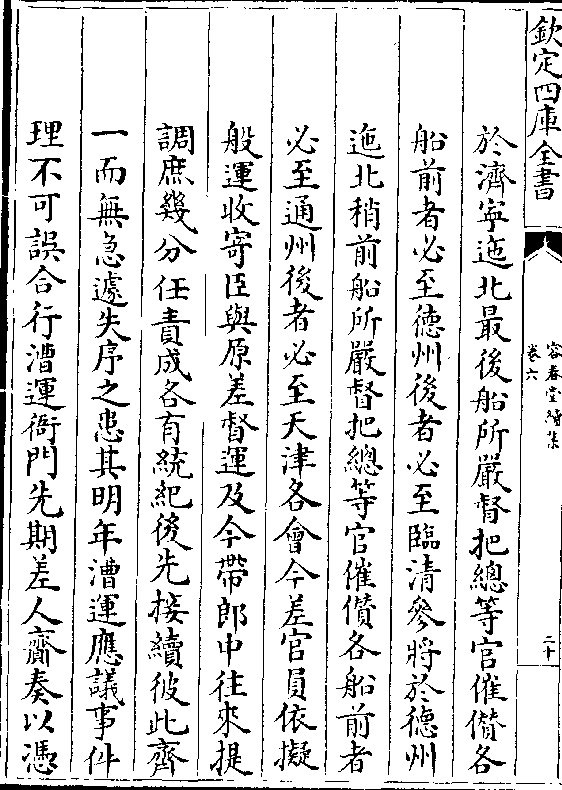 欽定四庫全書
容春堂續集
卷六
二十
於濟寧迤北最後船所嚴督把總等官催儹各
船前者必至德州後者必至臨清參將於德州
迤北稍前船所嚴督把總等官催儹各船前者
必至通州後者必至天津各會今差官員依擬
般運收寄臣與原差督運及今帶郎中往來提
調庶幾分任責成各有統紀後先接續彼此齊
一而無急遽失序之患其明年漕運應議事件
理不可誤合行漕運衙門先期差人齎奏以憑